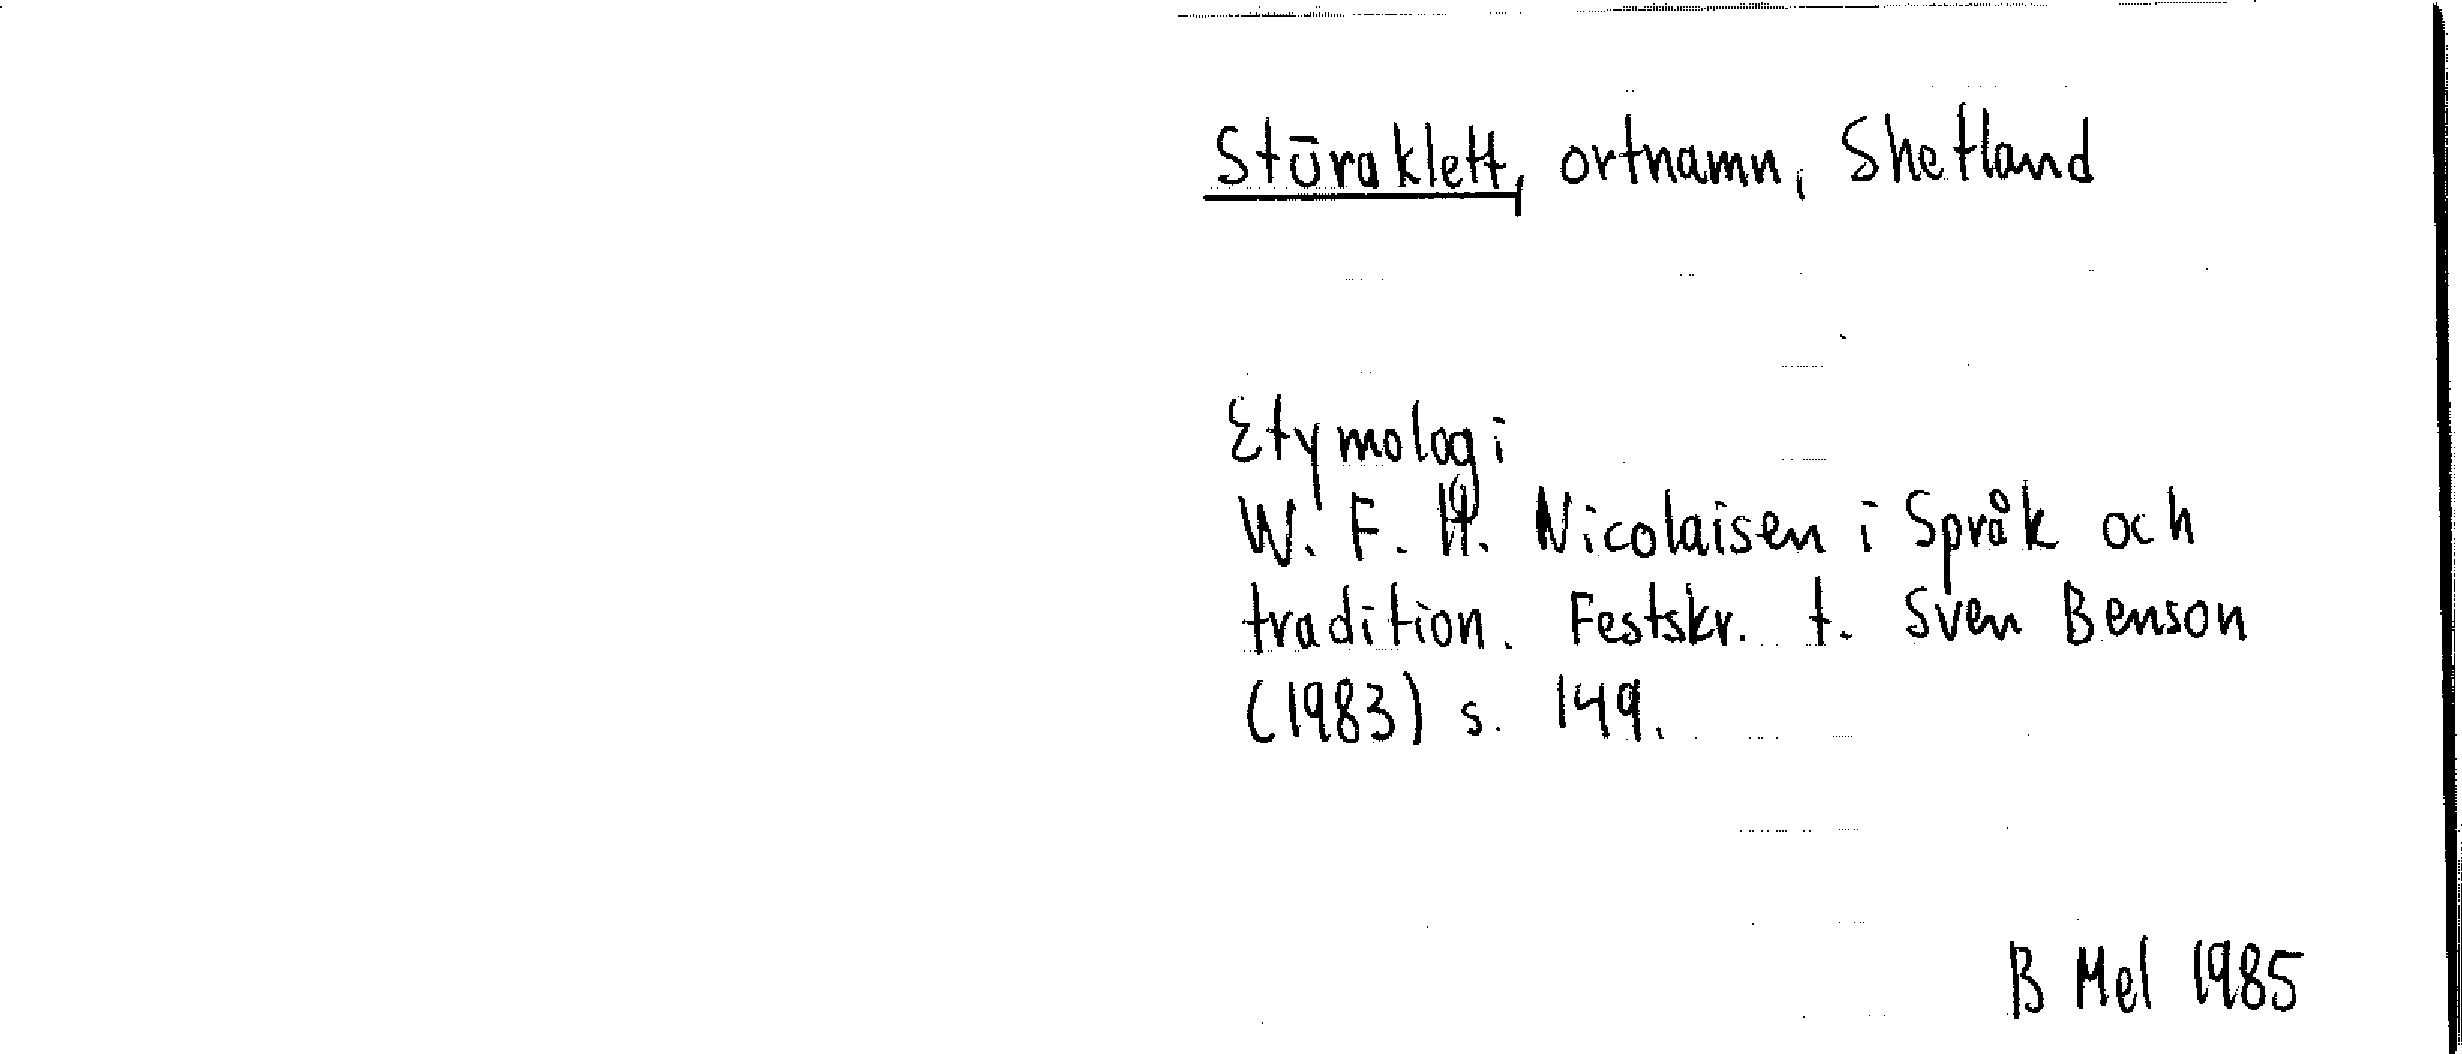 Stūraklett, ortnamn, Shetland
Etymologi
W. F. H. Nicolaisen i Språk och
tradition. Festskr. t. Sven Benson
(1983) s. 149.
B Mel 1985